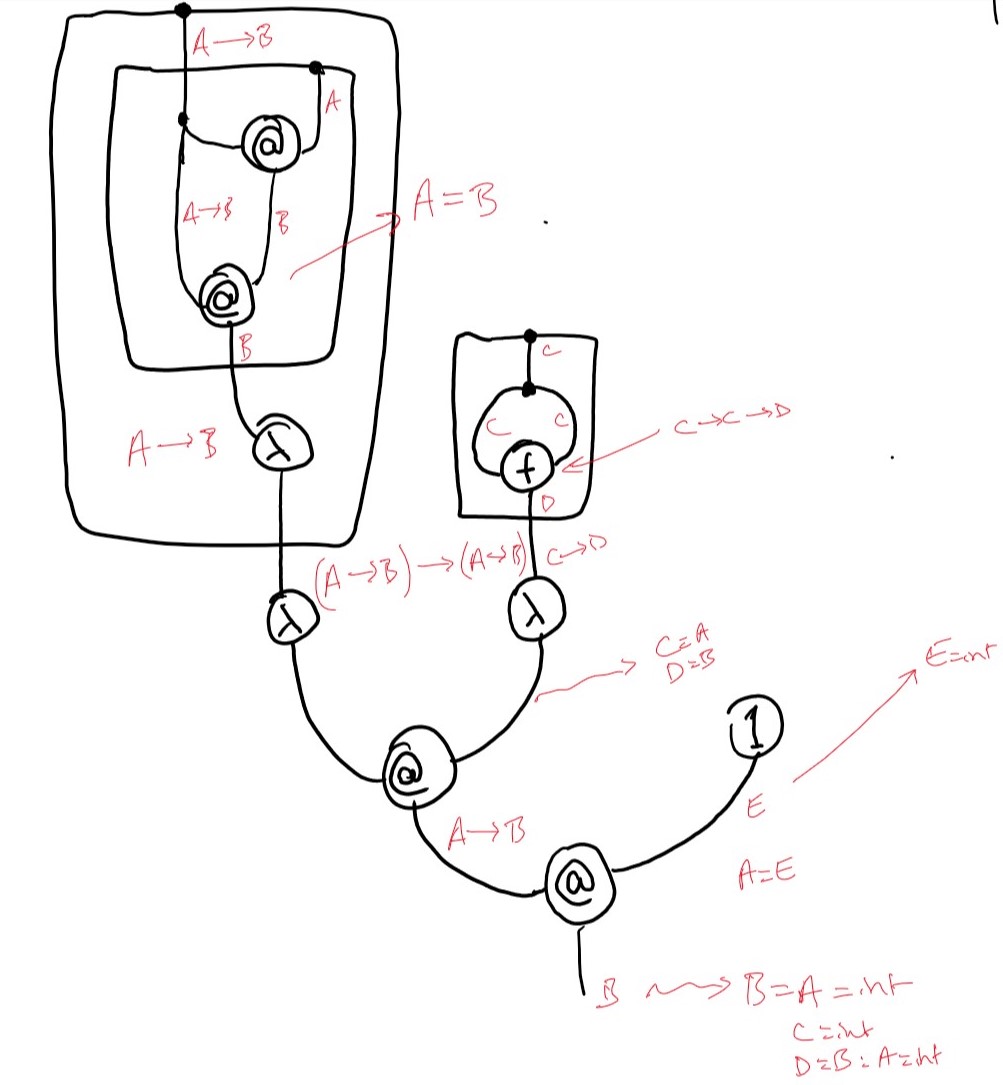 A→B
A
@
A→B
B
A=B
@
B
A→B
λ
C
C
C
C→C→D
f
D
(A→B)→(A→B)
C→D
λ
λ
C=A
D=B
E=int
1
@
E
A→B
A=E
@
B ⇝ B=A=int
C=int
D=B=A=int